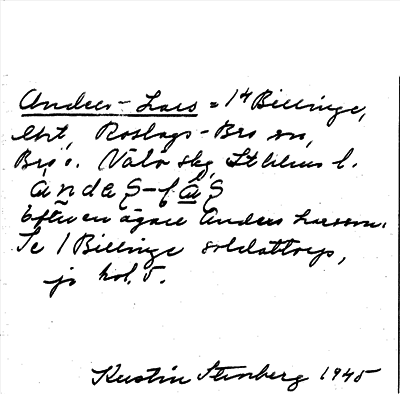 Anders-Lars = 1⁴ Billinge,
ent, Roslags-Bro sn,
Bro o. Vätö skg, Sthlms l.
ándas-làs
Efter en ägare Anders Larsson.
Se 1 Billinge soldattorp,
jb kol. 5.
Kerstin Stenberg 1945